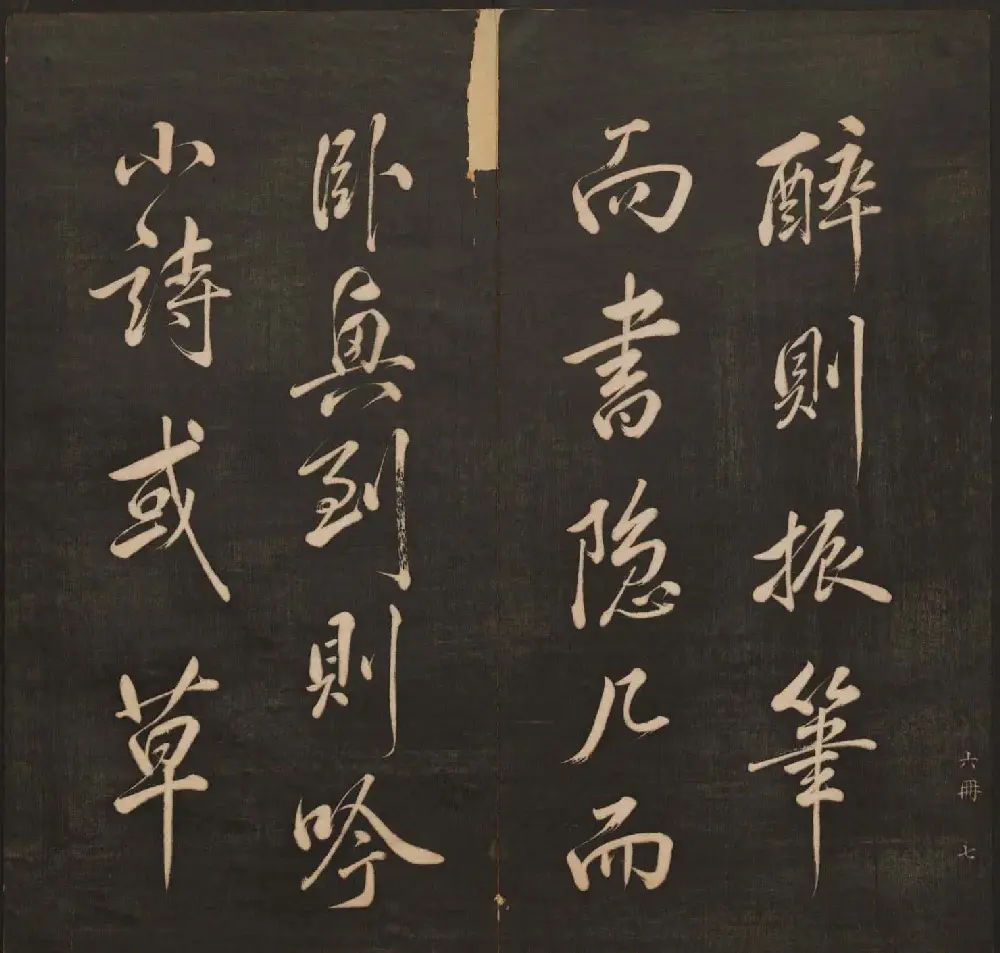 醉則振筆
而書隐几而
卧興到則吟
小詩或草
六冊 七